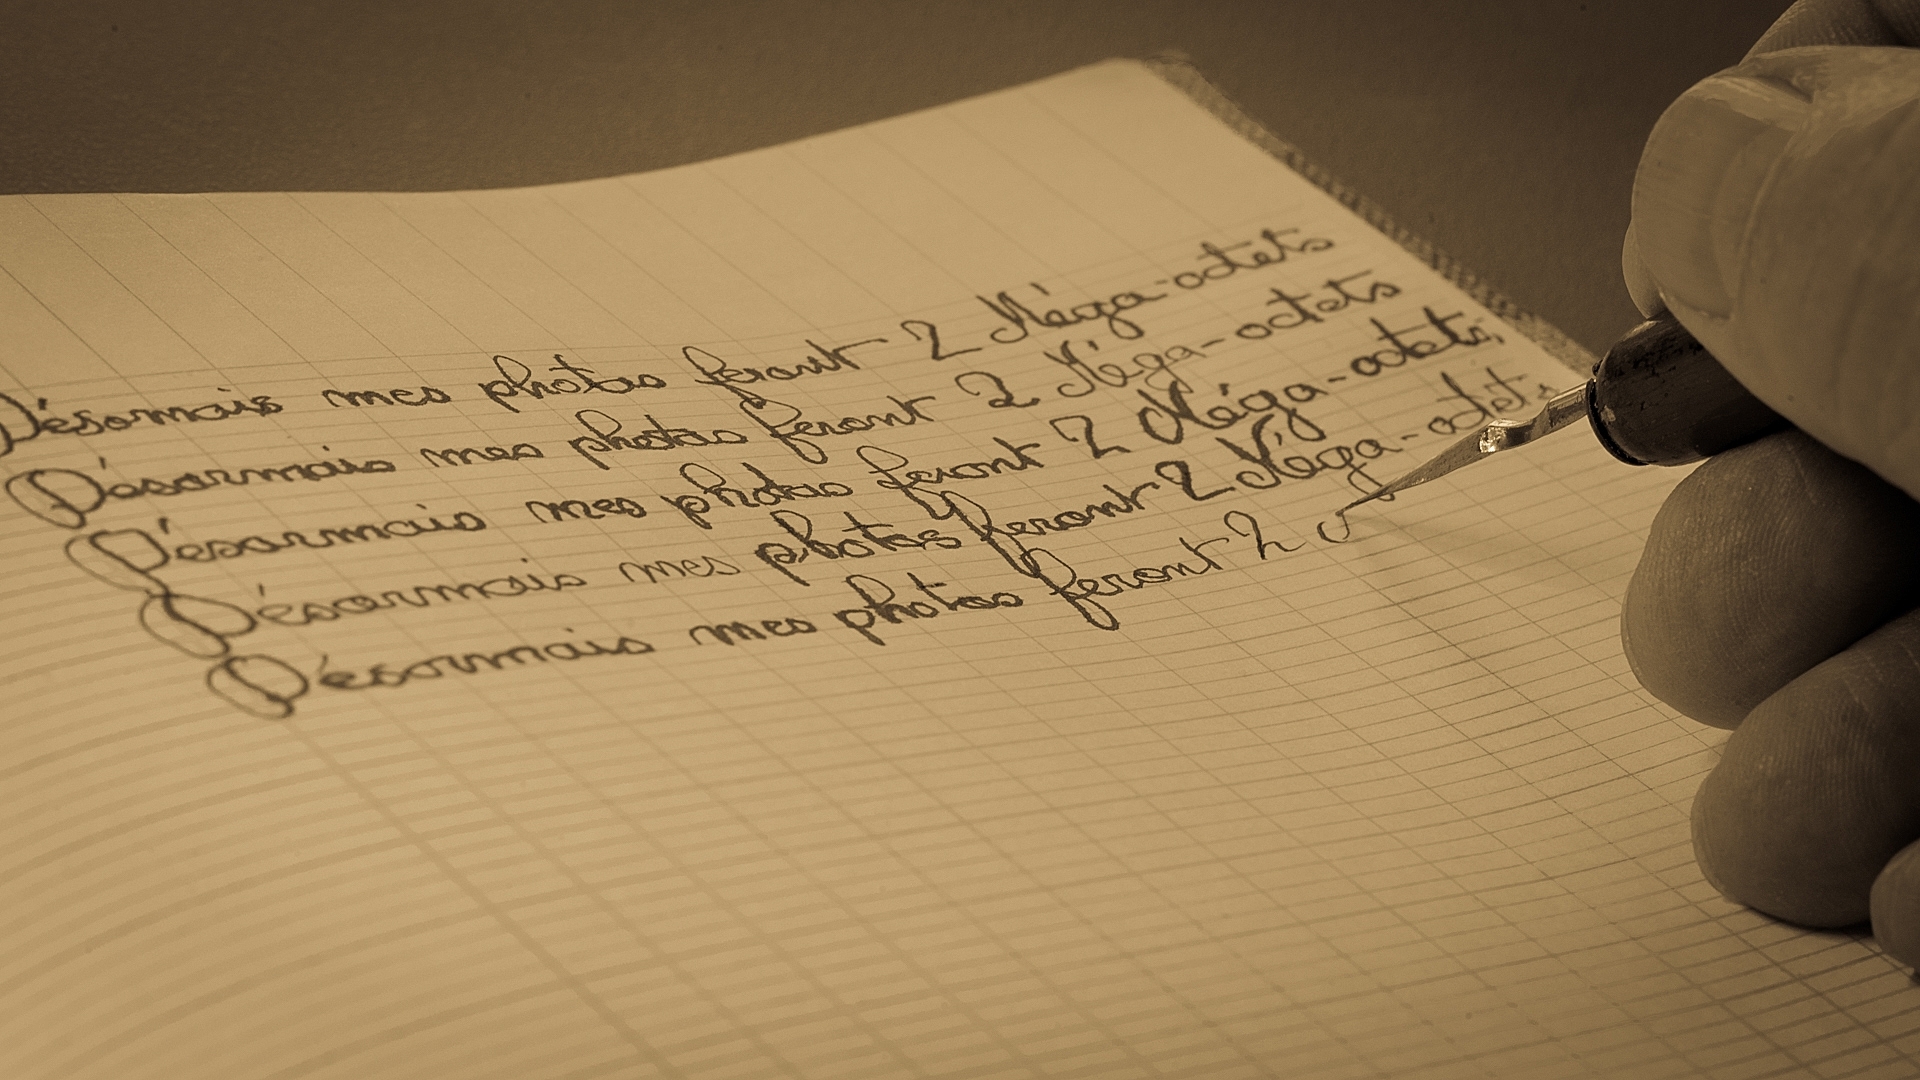 Désormais mes photos feront 2 Méga-octets
Désormais mes photos feront 2 Méga-octets
Désormais mes photos feront 2 Méga-octets,
Désormais mes photos feront 2 Méga-octets
Désormais mes photos feront 2